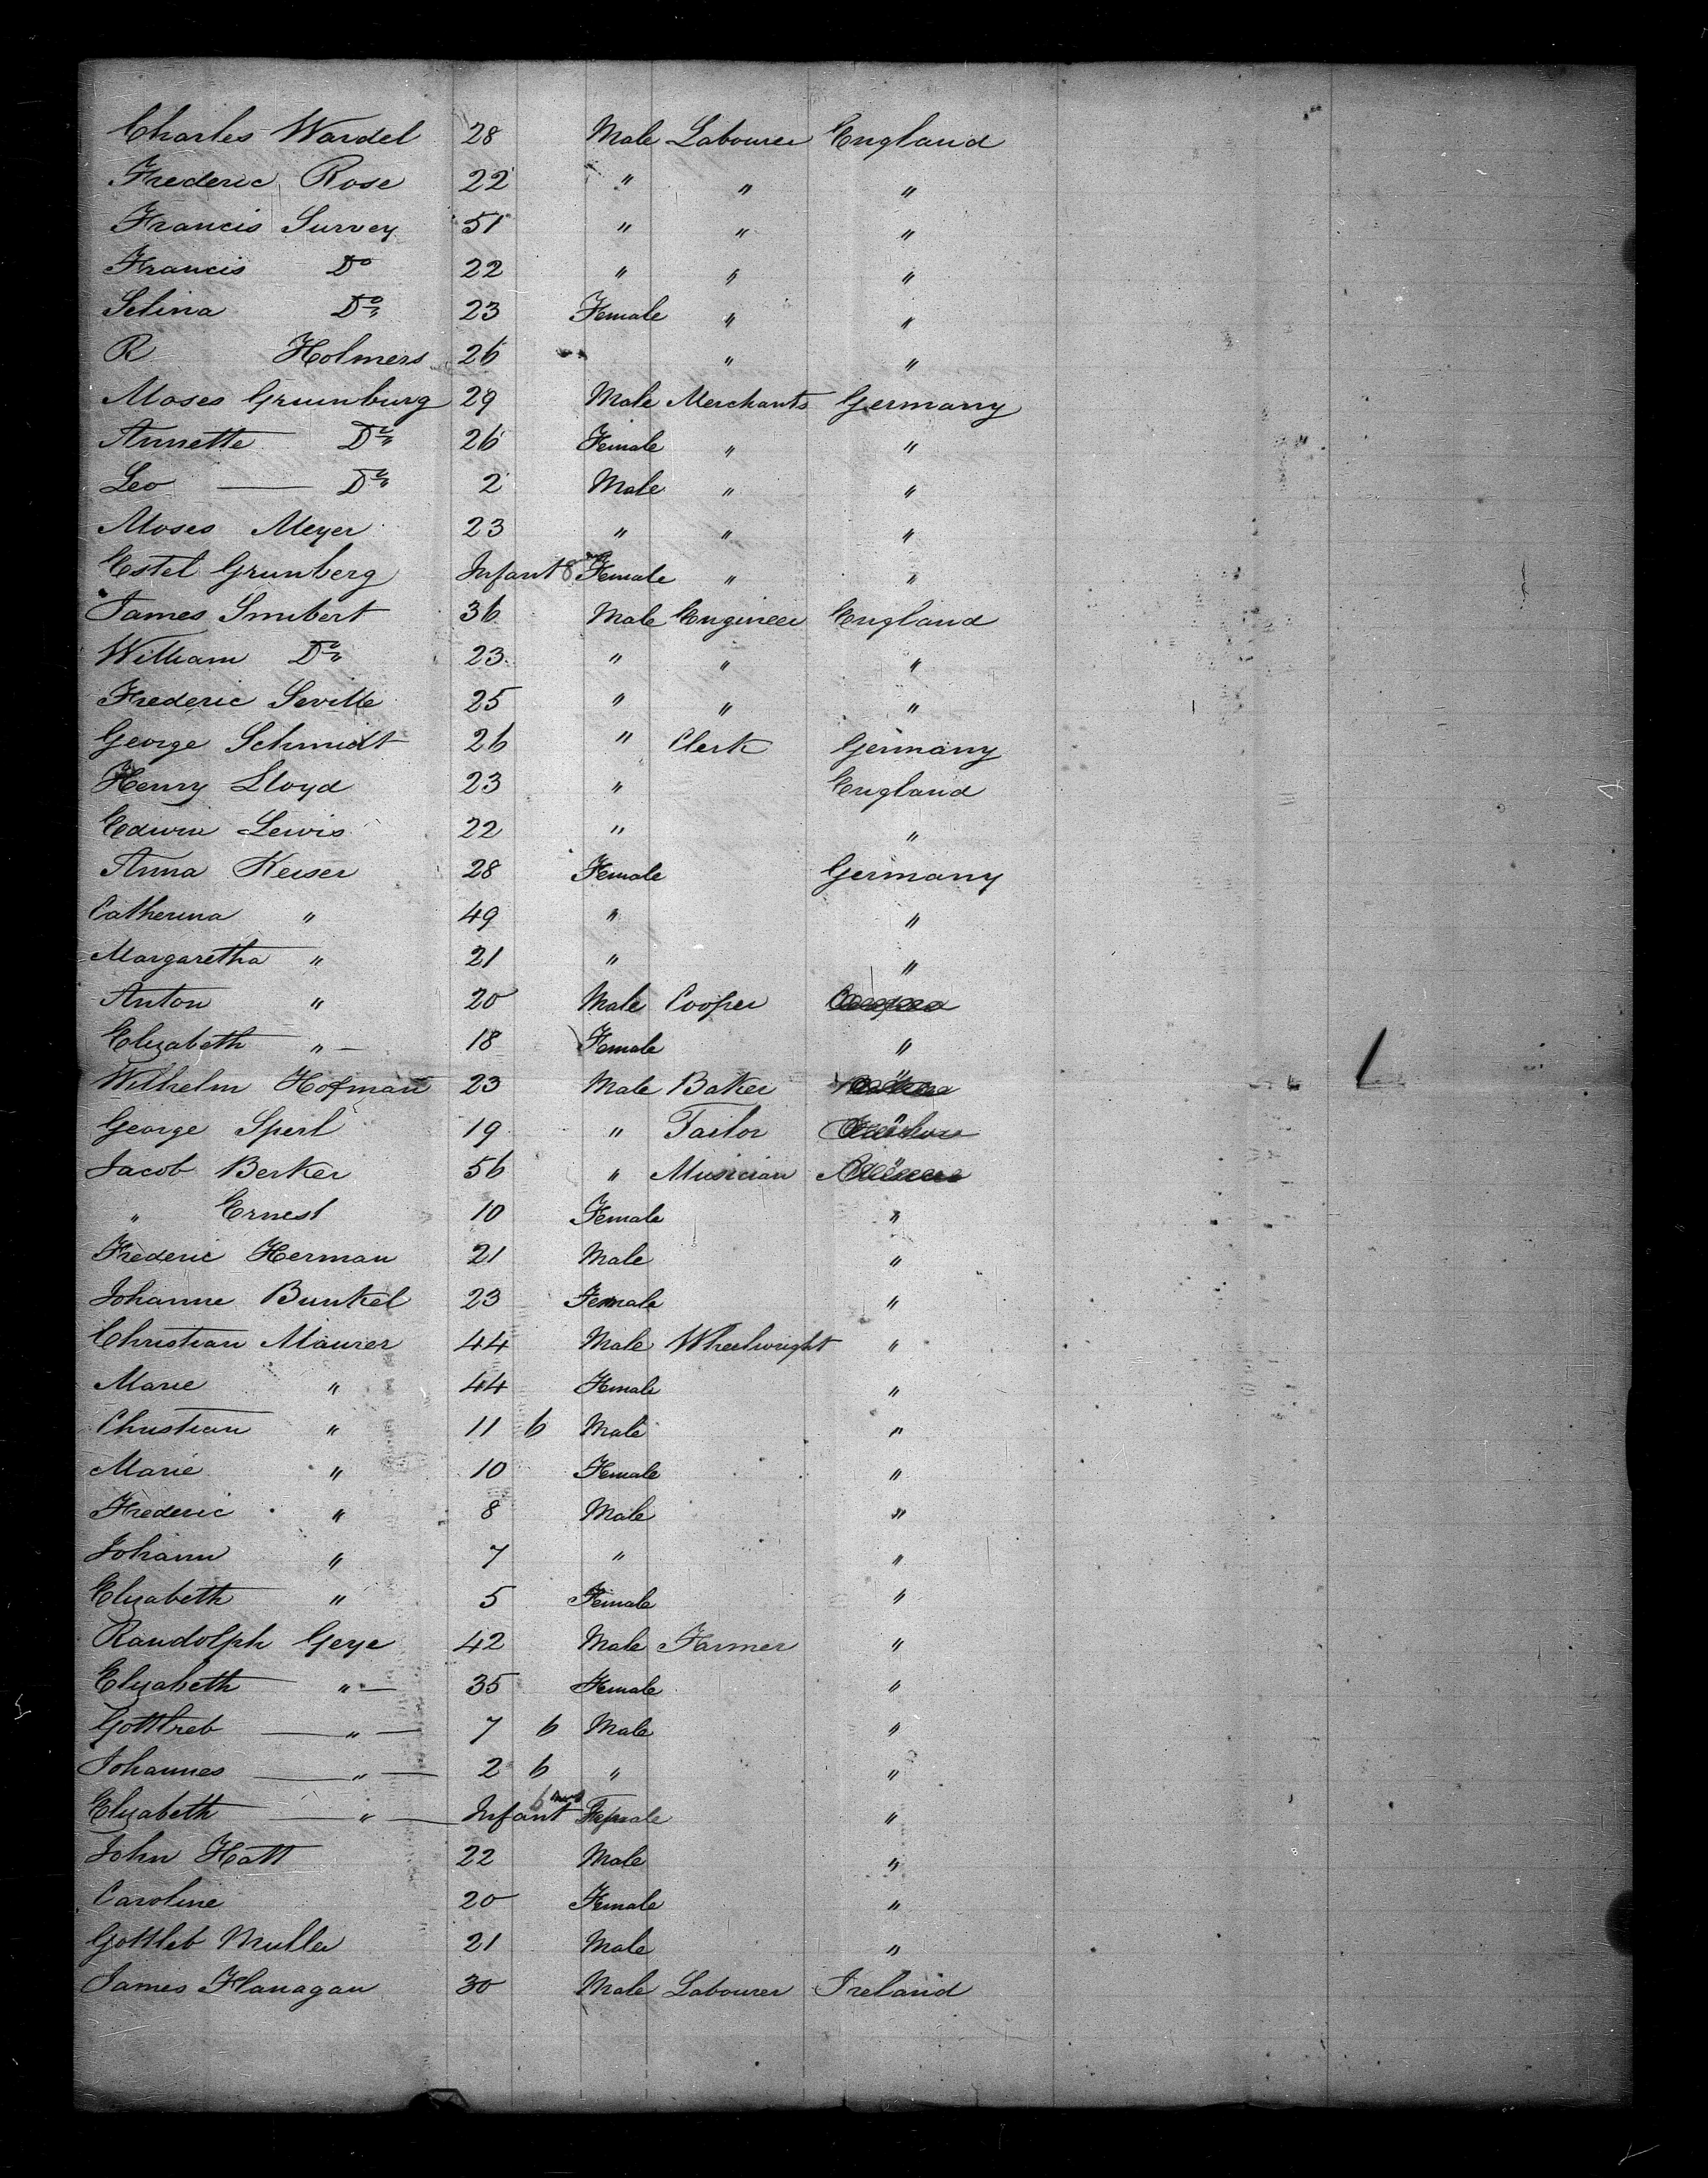 Charles Wardel 28 Male Labourer England
Frederic Rose 22 " " "
Francis Survey 51 " " "
Francis Do 22 " " "
Selina Do 23 Female " "
R Holmers 26 " "
Moses Grunburg 29 Male Merchants Germany
Annette Do 26 Female " "
Leo Do 2 Male " "
Moses Meyer 23 " " "
Estel Grunberg Infant 8 Female " "
James Smibert 36 Male Engineer England
William Do 23 " " "
Frederic Seville 25 " " "
George Schmidt 26 " Clerk Germany
Henry Lloyd 23 " England
Edwin Lewis 22 " "
Anna Keiser 28 Female Germany
Catherina " 49 " "
Margaretha " 21 " "
Anton " 20 Male Cooper
Elizabeth " 18 Female "
Wilhelm Hofman 23 Male Baker "
George Sperl 19 " Tailor "
Jacob Berker 56 " Musician "
" Ernest 10 Female "
Frederic Herman 21 Male "
Johanne Bunkel 23 Female "
Christian Maurer 44 Male Wheelwright "
Marie " 44 Female "
Christian " 11 6 Male "
Marie " 10 Female "
Frederic " 8 Male "
Johann " 7 " "
Elizabeth " 5 Female "
Randolph Geye 42 Male Farmer "
Elizabeth " 35 Female "
Gottlieb " 7 6 Male "
Johannes " 2 6 " "
Elizabeth " Infant 6 mos Female "
John Hatt 22 Male "
Caroline 20 Female "
Gottleb Muller 21 Male "
James Flanagan 30 Male Labourer Ireland